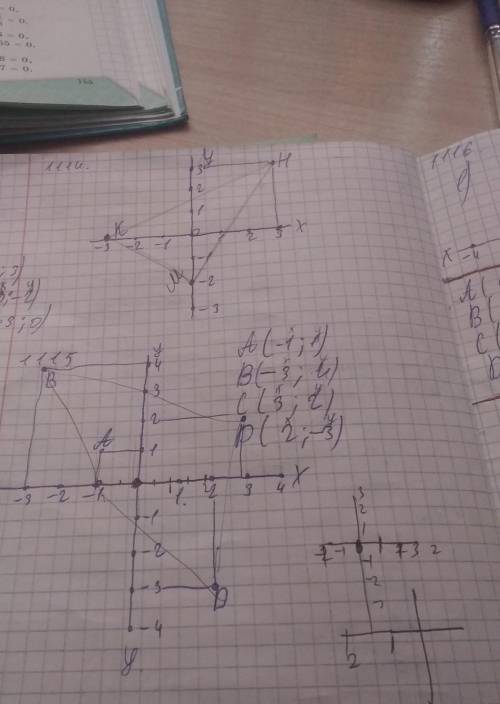 = 0,
= 0.
= 0,
55 = 0.
8 = 0,
7 = 0.
1114.
У
3
H
2
1
K
X
-3 -2 -1
2 3
-1
M
-2
-3
1115
У
4
B
3
2
A
1
-3 -2 -1
1 2 3 4
X
-1
-2
-3
D
-4
У
A(-1; 1)
B(-3; 4)
C(3; 2)
D(2; -3)
3
2
1
-1
-1
-2
2
2 1
1116
X -4
A(
B(
C(
D